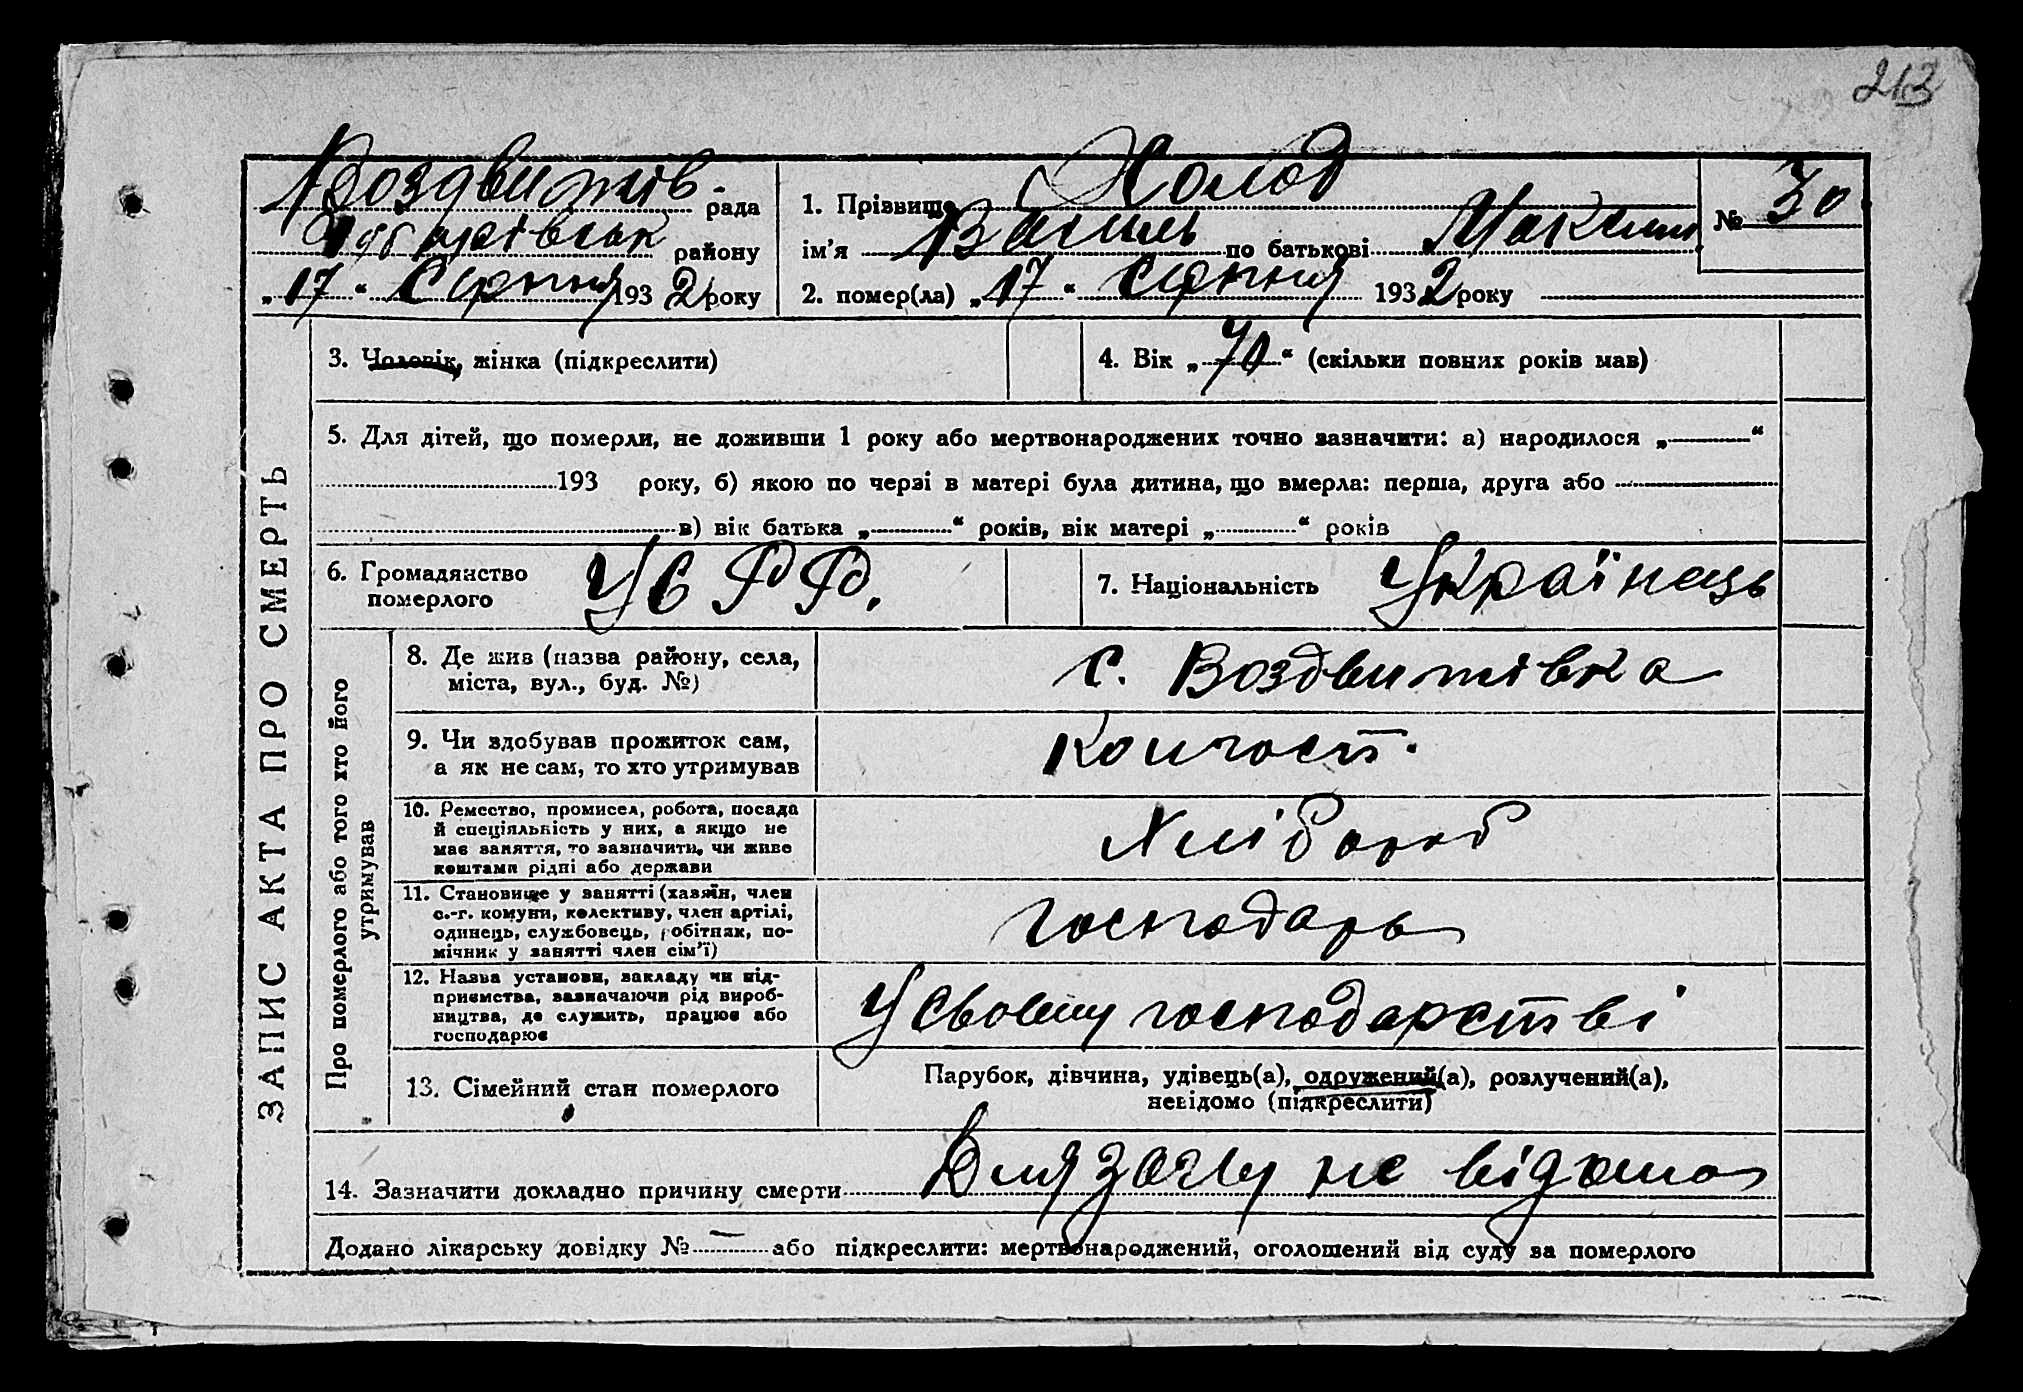 213
Воздвижів. рада
району
„17“ Серпня 1932 року
1. Прізвище Холод
ім'я Василь по батькові Максим.
№ 30
2. помер(ла) „17“ Серпня 1932 року
ЗАПИС АКТА ПРО СМЕРТЬ
3. Чоловік, жінка (підкреслити)
4. Вік „70“ (скільки повних років мав)
5. Для дітей, що померли, не доживши 1 року або мертвонароджених точно зазначити: а) народилося „ “
193 року, б) якою по черзі в матері була дитина, що вмерла: перша, друга або
в) вік батька „ “ років, вік матері „ “ років
6. Громадянство
померлого
УСРР.
7. Національність Українець
Про померлого або того хто його
утримував
8. Де жив (назва району, села,
міста, вул., буд. №)
с. Воздвижівка
9. Чи здобував прожиток сам,
а як не сам, то хто утримував
10. Ремество, промисел, робота, посада
й спеціяльність у них, а якщо не
має заняття, то зазначити, чи живе
коштами рідні або держави
Хлібороб
11. Становище у занятті (хазяїн, член
с.-г. комуни, колективу, член артілі,
одинець, службовець, робітник, по-
мічник у занятті член сім'ї)
господарь
12. Назва установи, закладу чи під-
приємства, зазначаючи рід вироб-
ництва, де служить, працює або
господарює
У своєму господарстві
13. Сімейний стан померлого
Парубок, дівчина, удівець(а), одружений(а), розлучений(а),
невідомо (підкреслити)
14. Зазначити докладно причину смерти не відомо
Додано лікарську довідку № — або підкреслити: мертвонароджений, оголошений від суду за померлого